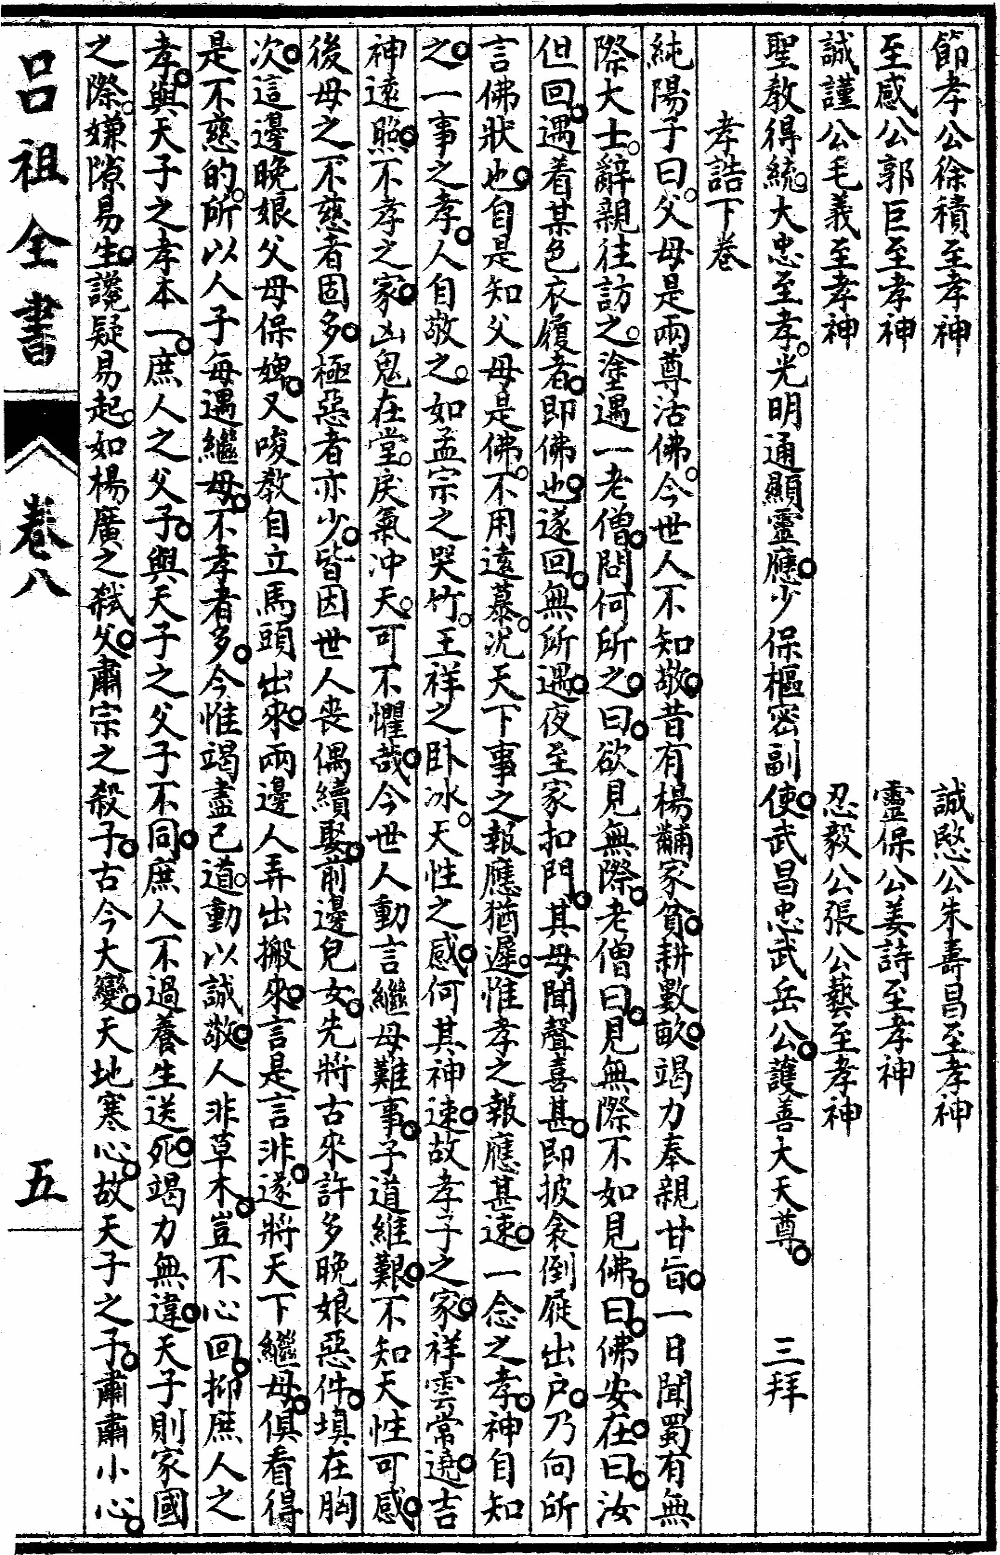 節孝公徐積至孝神　誠愍公朱壽昌至孝神
至感公郭巨至孝神　靈保公姜詩至孝神
誠謹公毛義至孝神　忍毅公張公藝至孝神
聖教得統。大忠至孝。光明通顯靈應。少保樞密副使。武昌忠武岳公。護善大天尊。　三拜
孝誥下卷
純陽子曰。父母是兩尊活佛。今世人不知敬。昔有楊黼家貧。耕數畝。竭力奉親甘旨。一日聞蜀有無
際大士。辭親往訪之。塗遇一老僧。問何所之。曰。欲見無際。老僧曰。見無際不如見佛。曰。佛安在。曰。汝
但回。遇着某色衣履者。即佛也。遂回。無所遇。夜至家扣門。其母聞聲喜甚。即披衾倒屣出戶。乃向所
言佛狀也。自是知父母是佛。不用遠慕。况天下事之報應猶遲。惟孝之報應甚速。一念之孝。神自知
之。一事之孝。人自敬之。如孟宗之哭竹。王祥之卧冰。天性之感。何其神速。故孝子之家。祥雲常遶。吉
神遠照。不孝之家。凶鬼在堂。戾氣冲天。可不懼哉。今世人動言繼母難事。子道維艱。不知天性可感。
後母之不慈者固多。極惡者亦少。皆因世人喪偶續娶。前邊兒女。先將古來許多晚娘惡件。填在胸
次。這邊晚娘父母保婢。又唆教自立馬頭出來。兩邊人弄出搬來。言是言非。遂將天下繼母。俱看得
是不慈的。所以人子每遇繼母。不孝者多。今惟竭盡己道。動以誠敬。人非草木。豈不心回。抑庶人之
孝。與天子之孝本一。庶人之父子。與天子之父子不同。庶人不過養生送死。竭力無違。天子則家國
之際。嫌隙易生。讒疑易起。如楊廣之弒父。肅宗之殺子。古今大變。天地寒心。故天子之子。肅肅小心。
呂祖全書
卷八
五